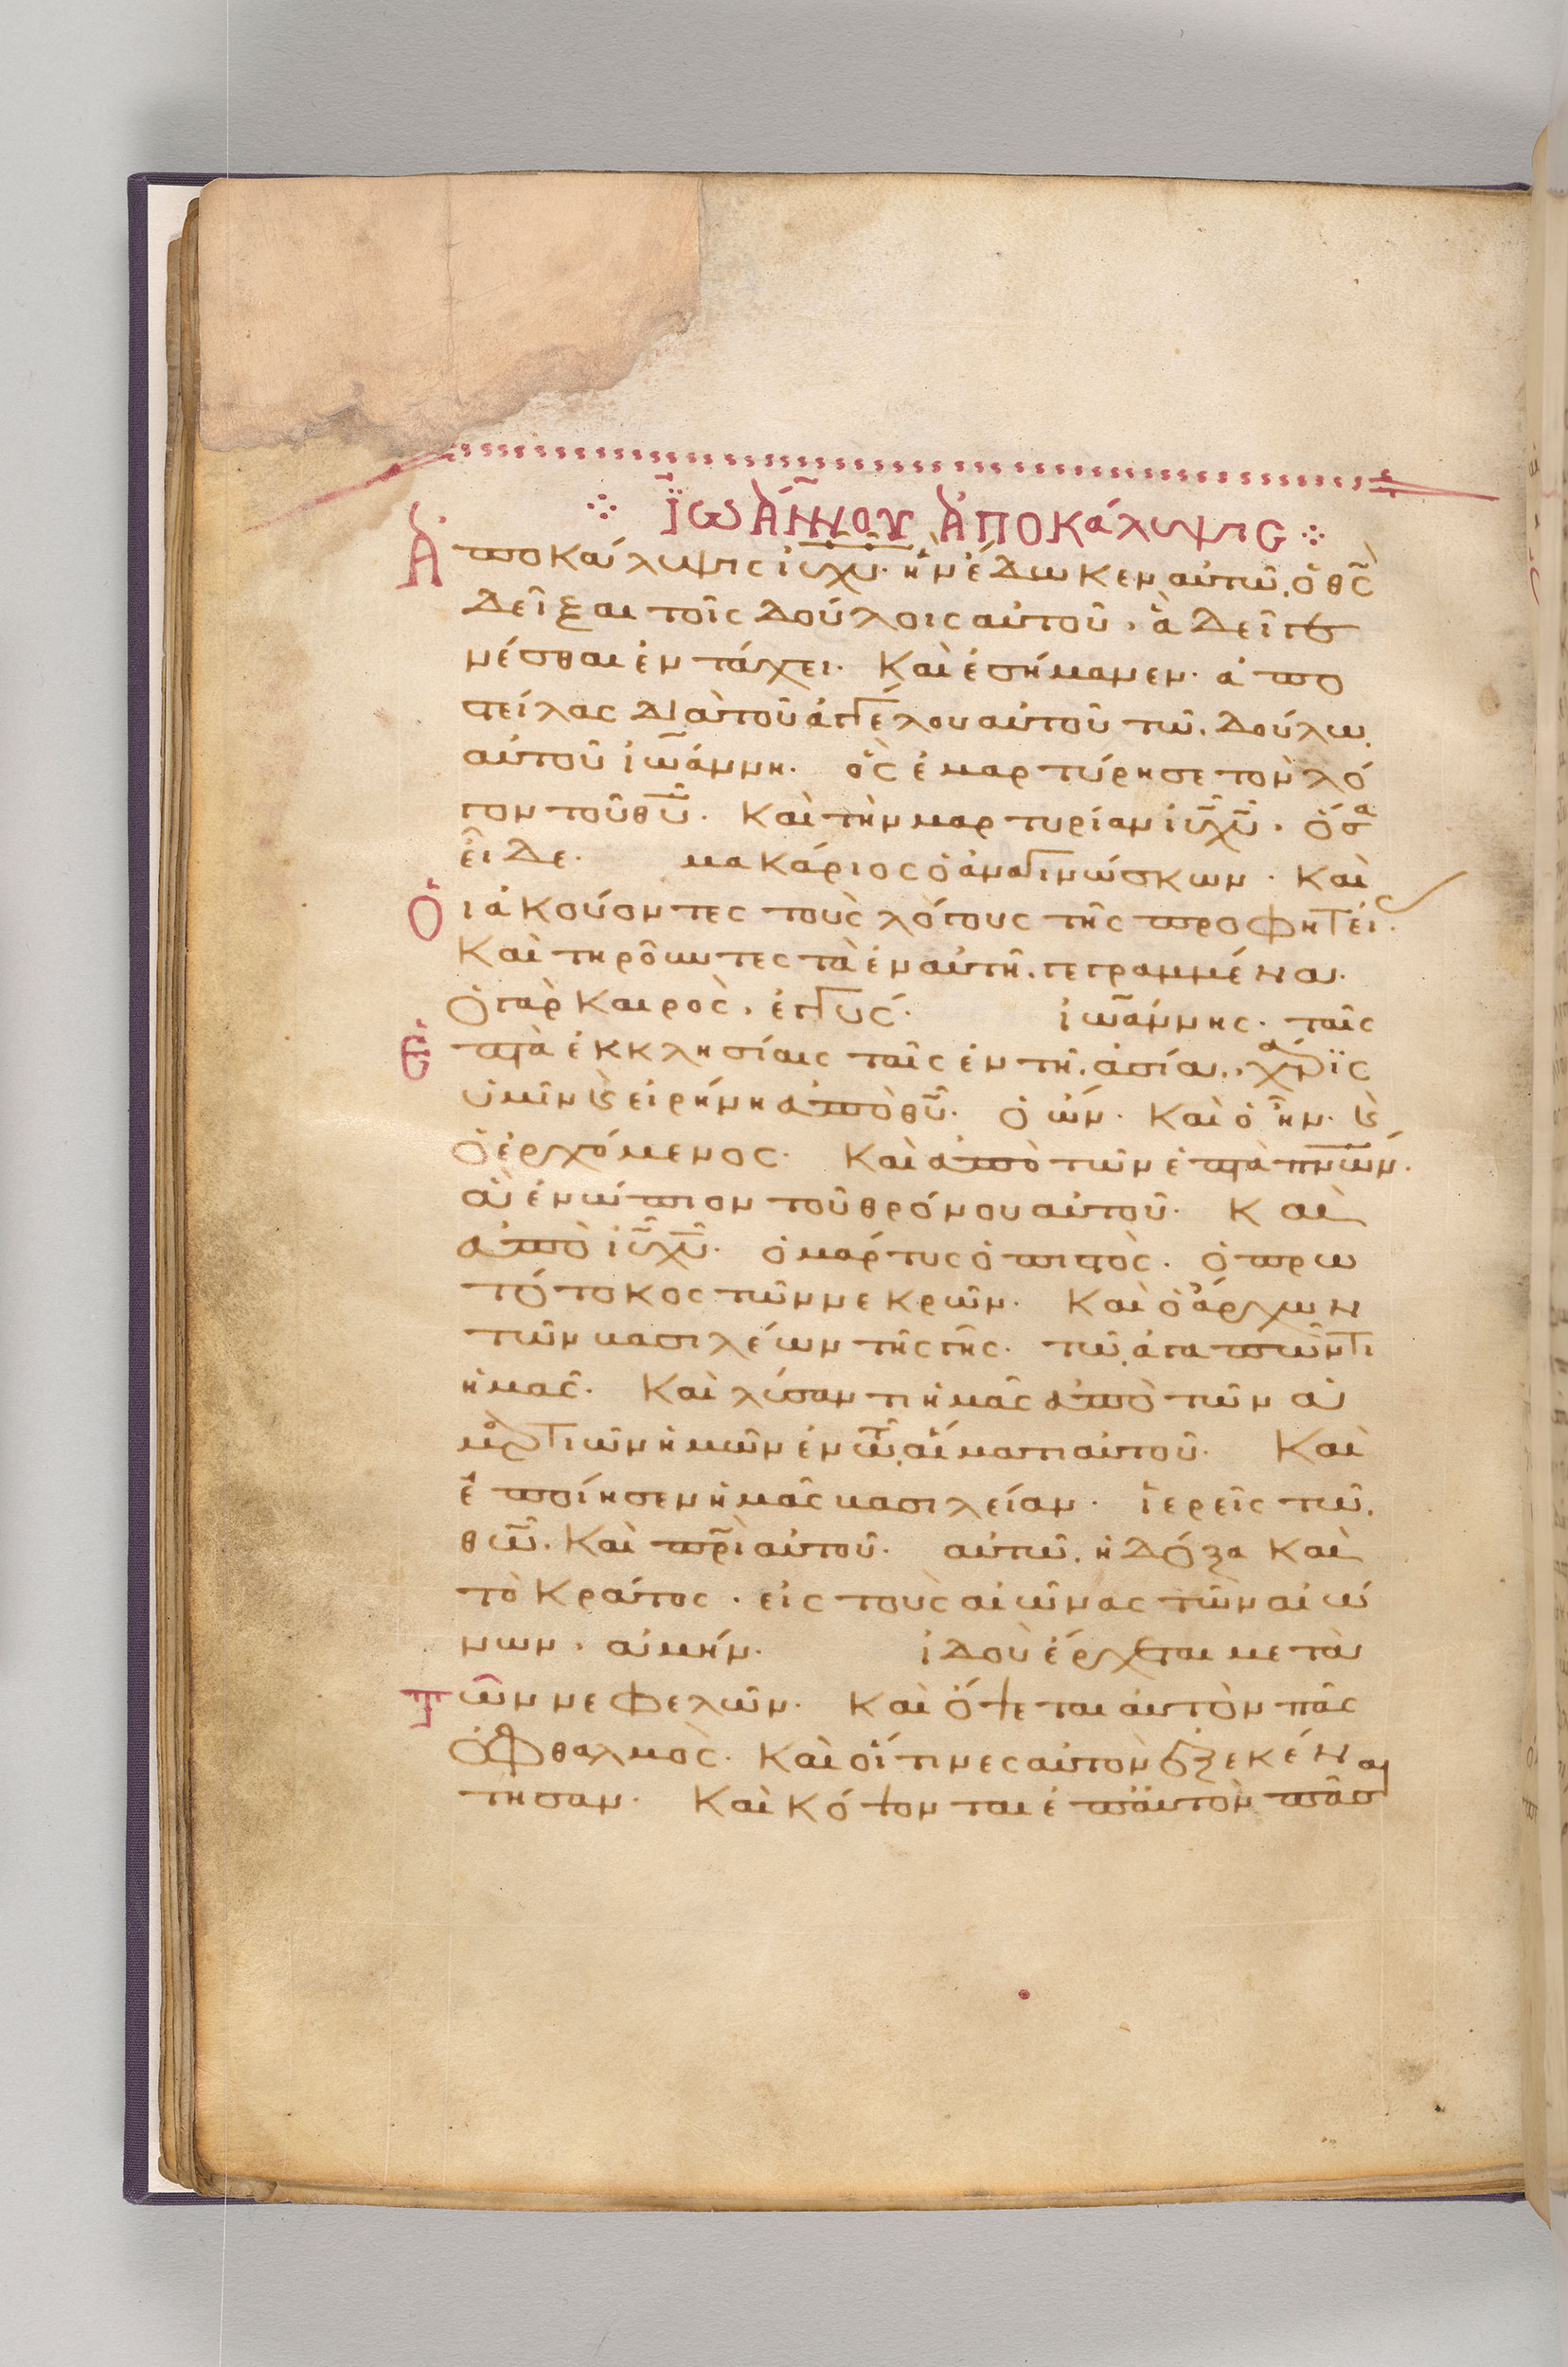 Ἰωάννου ἀποκάλυψις
Ἀποκάλυψις ἰυ χυ· ἣν ἔδωκεν αὐτῶ ὁ θς
δεῖξαι τοῖς δούλοις αὐτοῦ, ἃ δεῖ γε
νέσθαι ἐν τάχει· καὶ ἐσήμανεν· ἀπο
στείλας διὰ τοῦ ἀγγέλου αὐτοῦ τῶ δούλω
αὐτοῦ ἰωάννη· ὃς ἐμαρτύρησε τὸν λό
γον τοῦ θυ· καὶ τὴν μαρτυρίαν ἰυ χυ, ὅσα
εἶδε· μακάριος ὁ ἀναγινώσκων· καὶ
Ὁι ἀκούοντες τοὺς λόγους τῆς προφητεί·
καὶ τηροῦντες τὰ ἐν αὐτῆ γεγραμμένα·
ὁ γὰρ καιρὸς, ἐγγύς· ἰωάννης· ταῖς
Ἑπτὰ ἐκκλησίαις ταῖς ἐν τῆ ἀσία, χάρϊς
ὑμῖν ϗ εἰρήνη ἀπὸ θυ· ὁ ὢν· καὶ ὁ ἦν· ϗ
ὁ ἐρχόμενος· καὶ ἀπὸ τῶν ἑπτὰ πνων·
ἃ ἐνώπιον τοῦ θρόνου αὐτοῦ· καὶ
ἀπὸ ἰυ χυ· ὁ μάρτυς ὁ πιστὸς· ὁ πρω
τότοκος τῶν νεκρῶν· καὶ ὁ ἄρχων
τῶν βασιλέων τῆς γῆς· τῶ ἀγαπῶντι
ἡμᾶς· καὶ λύσαντι ἡμᾶς ἀπὸ τῶν ἁ
μαρτιῶν ἡμῶν ἐν τῶ αἵματι αὐτοῦ· καὶ
ἐποίησεν ἡμᾶς βασιλείαν· ἱερεῖς τῶ
θω· καὶ πρι αὐτοῦ· αὐτῶ ἡ δόξα καὶ
τὸ κράτος· εἰς τοὺς αἰῶνας τῶν αἰώ
νων, ἀμήν· ἰδοὺ ἔρχεται μετὰ
Τῶν νεφελῶν· καὶ ὄψεται αὐτὸν πᾶς
ὀφθαλμὸς· καὶ οἵτινες αὐτὸν ἐξεκέν
τησαν· καὶ κόψονται ἐπ' αὐτὸν πᾶσαι